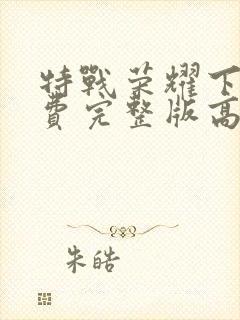 特戰荣耀下
費完整版高
朱皓